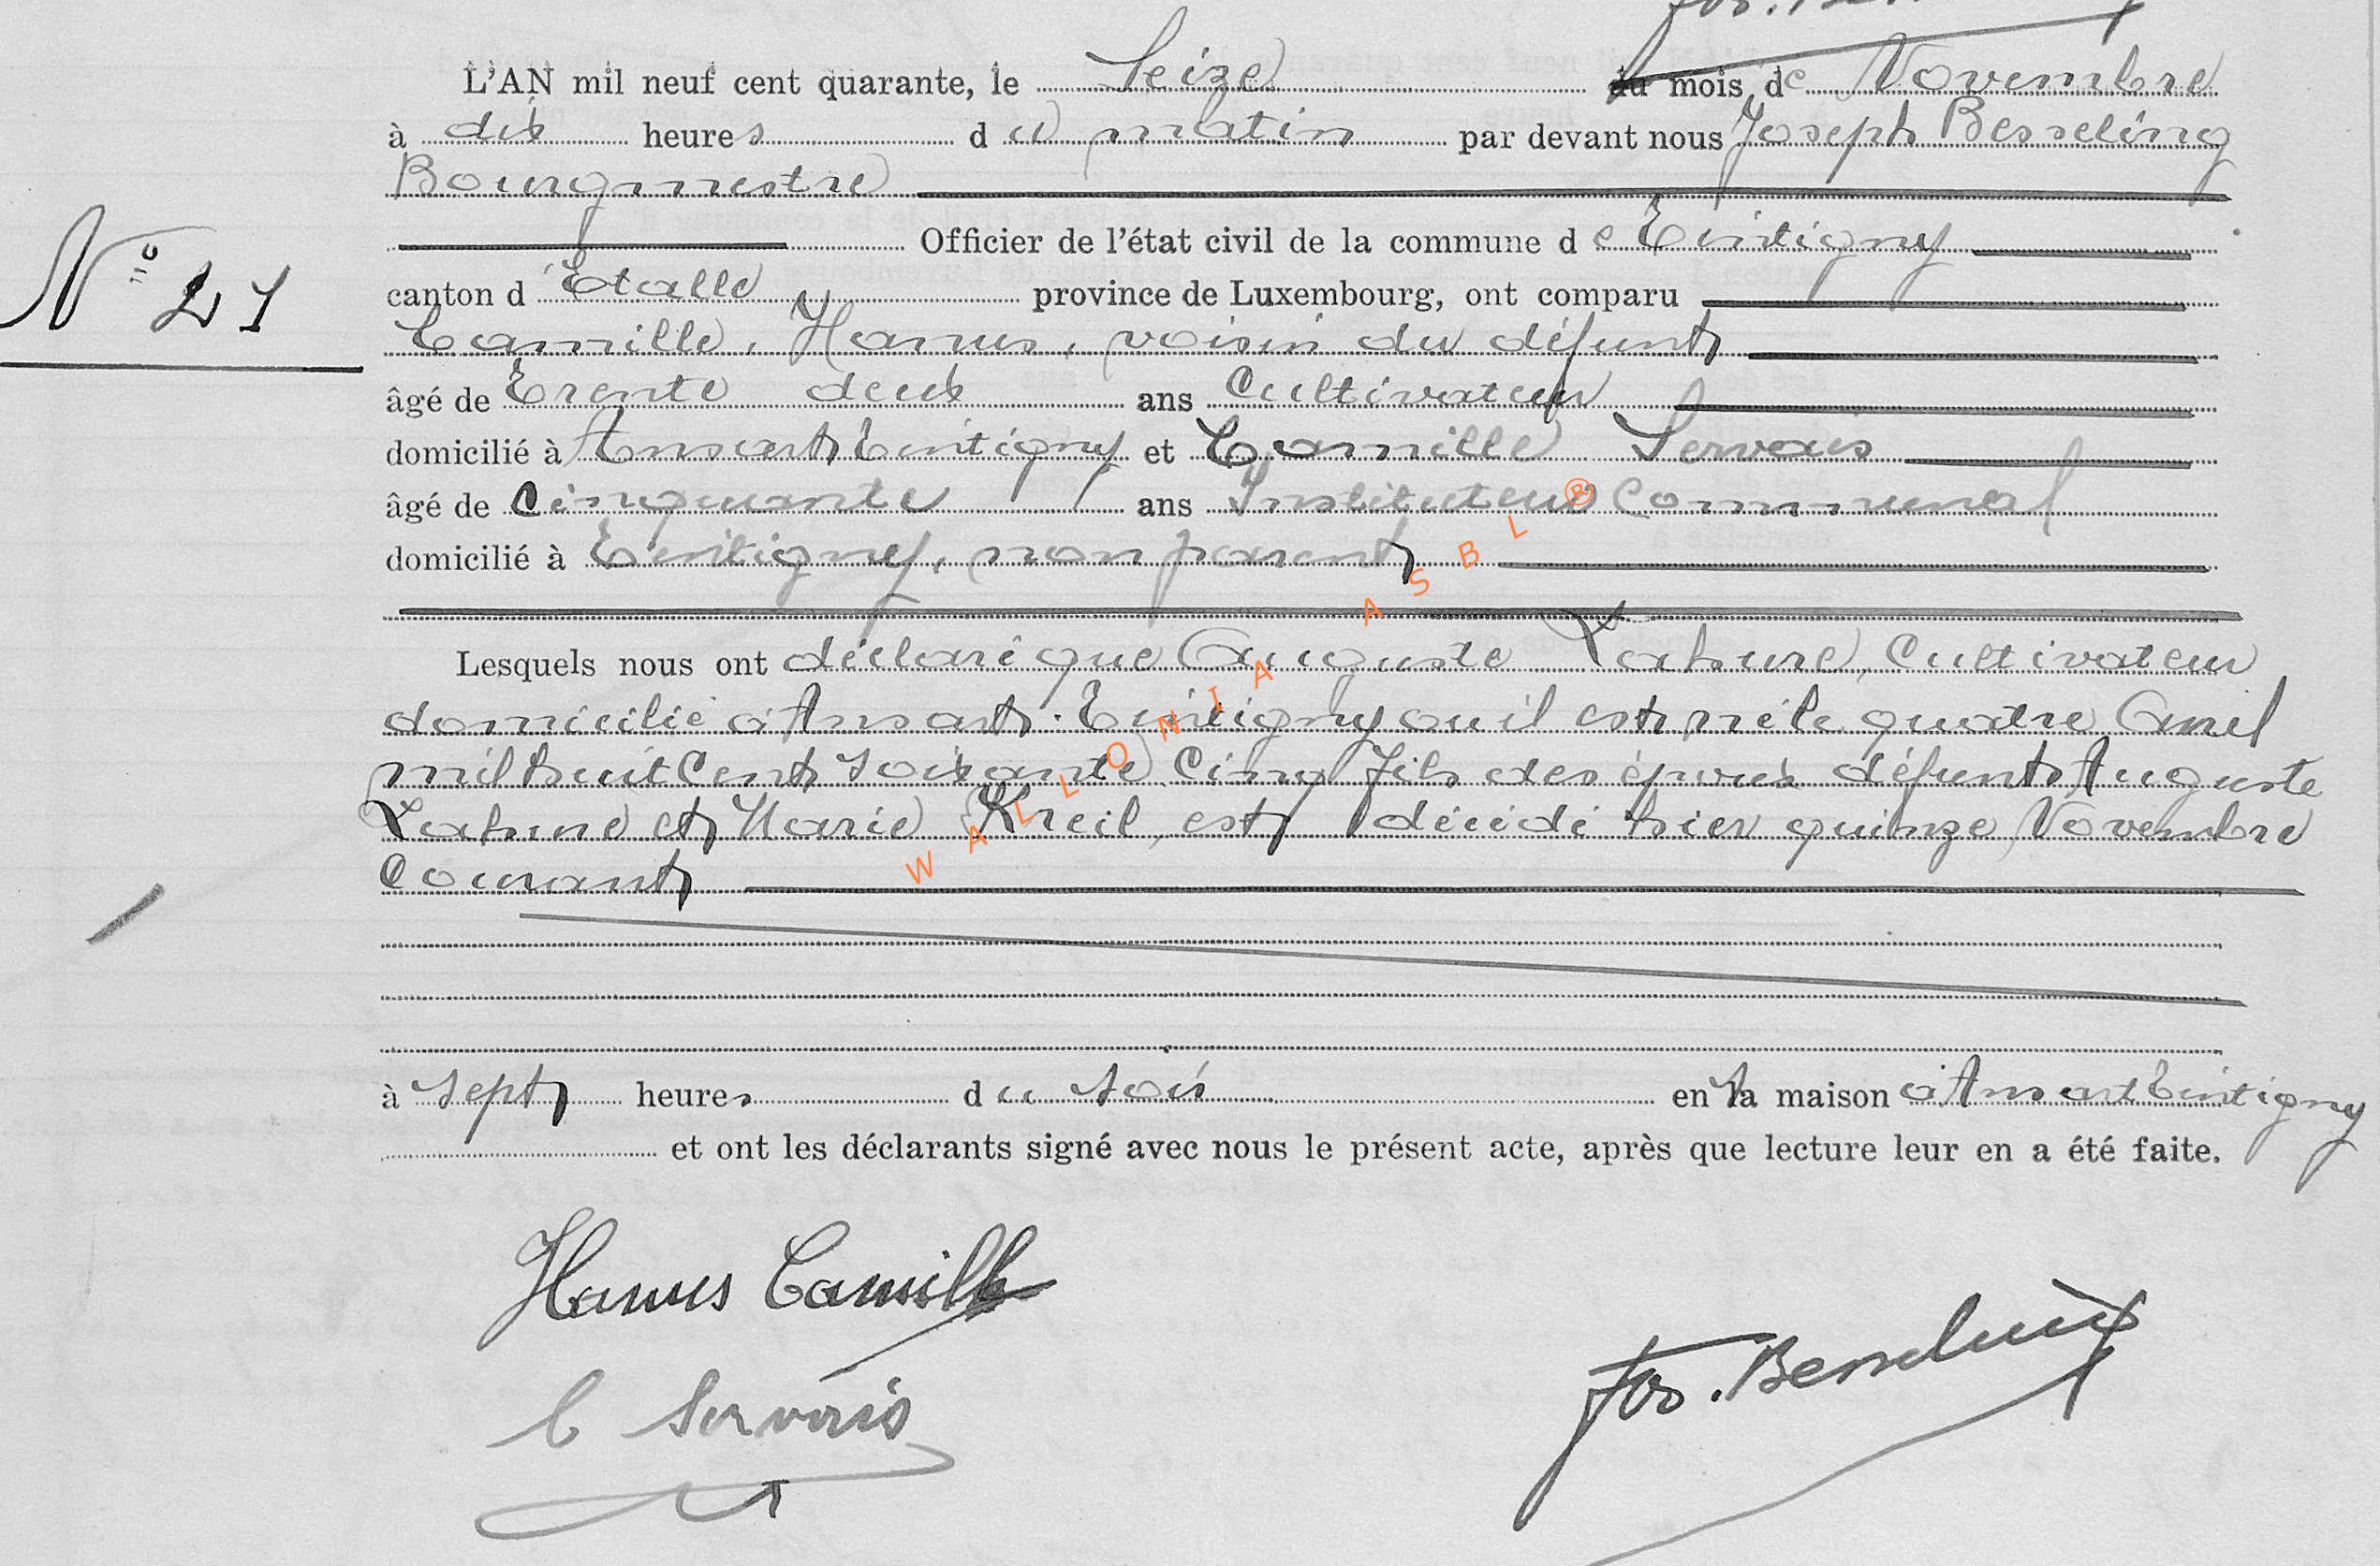 L'AN mil neuf cent quarante, le Seize du mois de Novembre
à dix heures du matin par devant nous Joseph Besseling
Bourgmestre
Officier de l'état civil de la commune de Tintigny
N° 21
canton d'Etalle province de Luxembourg, ont comparu
Camille, Hanus, voisin du défunt
âgé de Trente deux ans Cultivateur
domicilié à Ansart Tintigny et Camille Servais
âgé de Cinquante ans Instituteur Communal
domicilié à Tintigny, non parent
Lesquels nous ont déclaré que Auguste Lahure, Cultivateur
domicilié à Ansart. Tintigny où il est né le quatre Avril
mil huit Cent soixante Cinq fils des époux défunts Auguste
Lahure et Marie Kreil, est décédé hier quinze Novembre
Courant
à sept heures du soir en la maison à Ansart Tintigny
et ont les déclarants signé avec nous le présent acte, après que lecture leur en a été faite.
Hanus Camille
C Servais
Jos. Besseling
WALLONIA ASBL ®